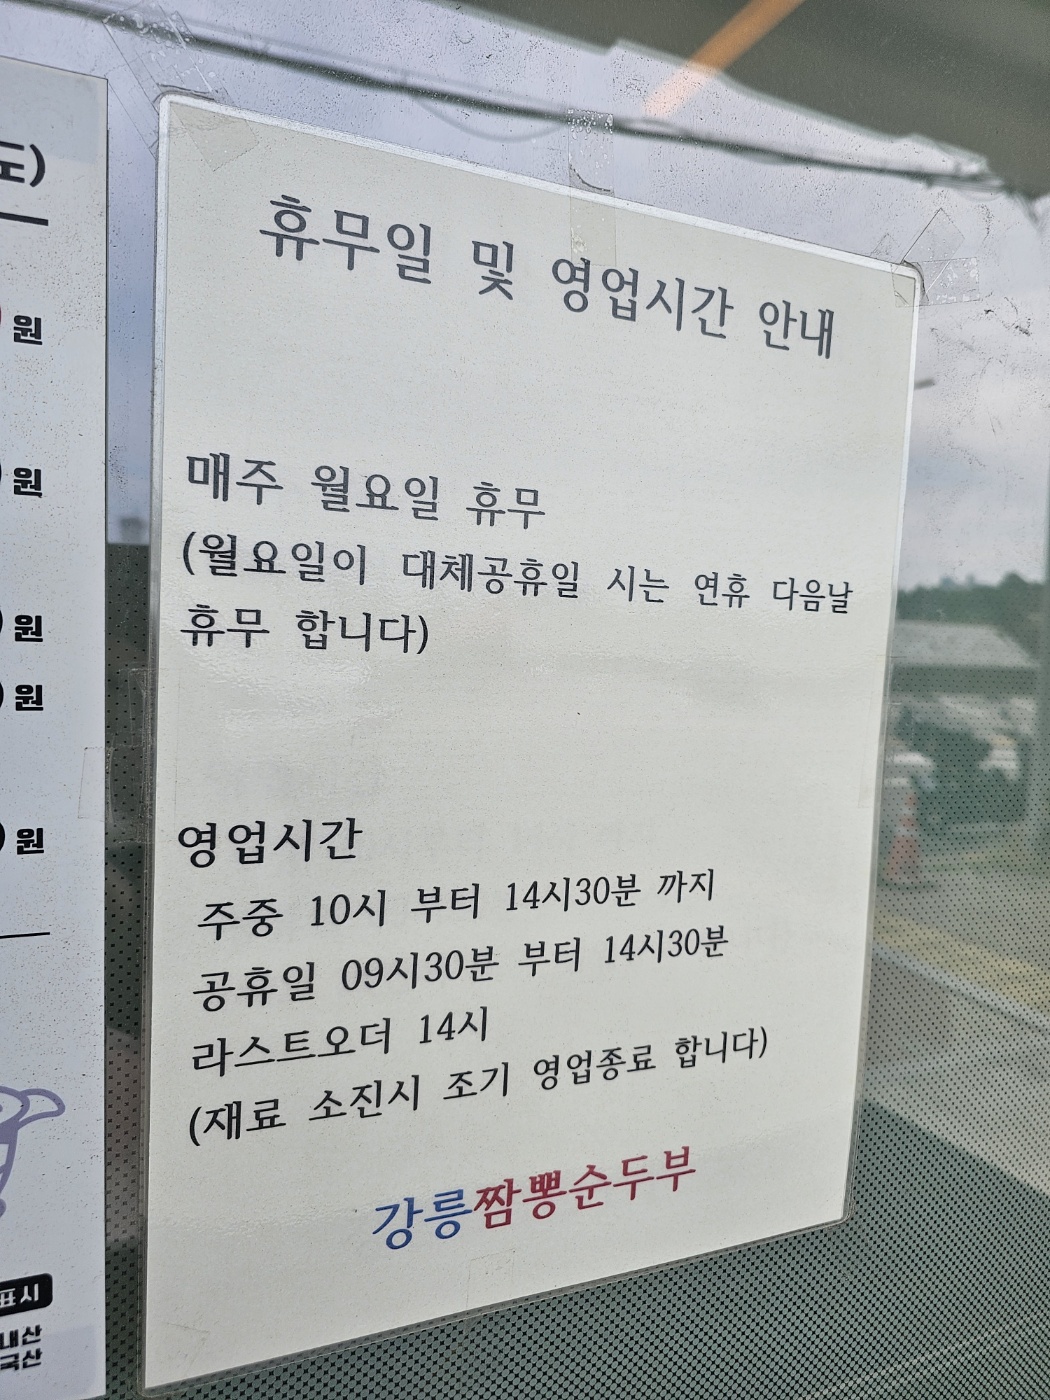 도)
원
원
원
원
원
표시
내산
국산
휴무일 및 영업시간 안내
매주 월요일 휴무
(월요일이 대체공휴일 시는 연휴 다음날
휴무 합니다)
영업시간
주중 10시 부터 14시30분 까지
공휴일 09시30분 부터 14시30분
라스트오더 14시
(재료 소진시 조기 영업종료 합니다)
강릉짬뽕순두부